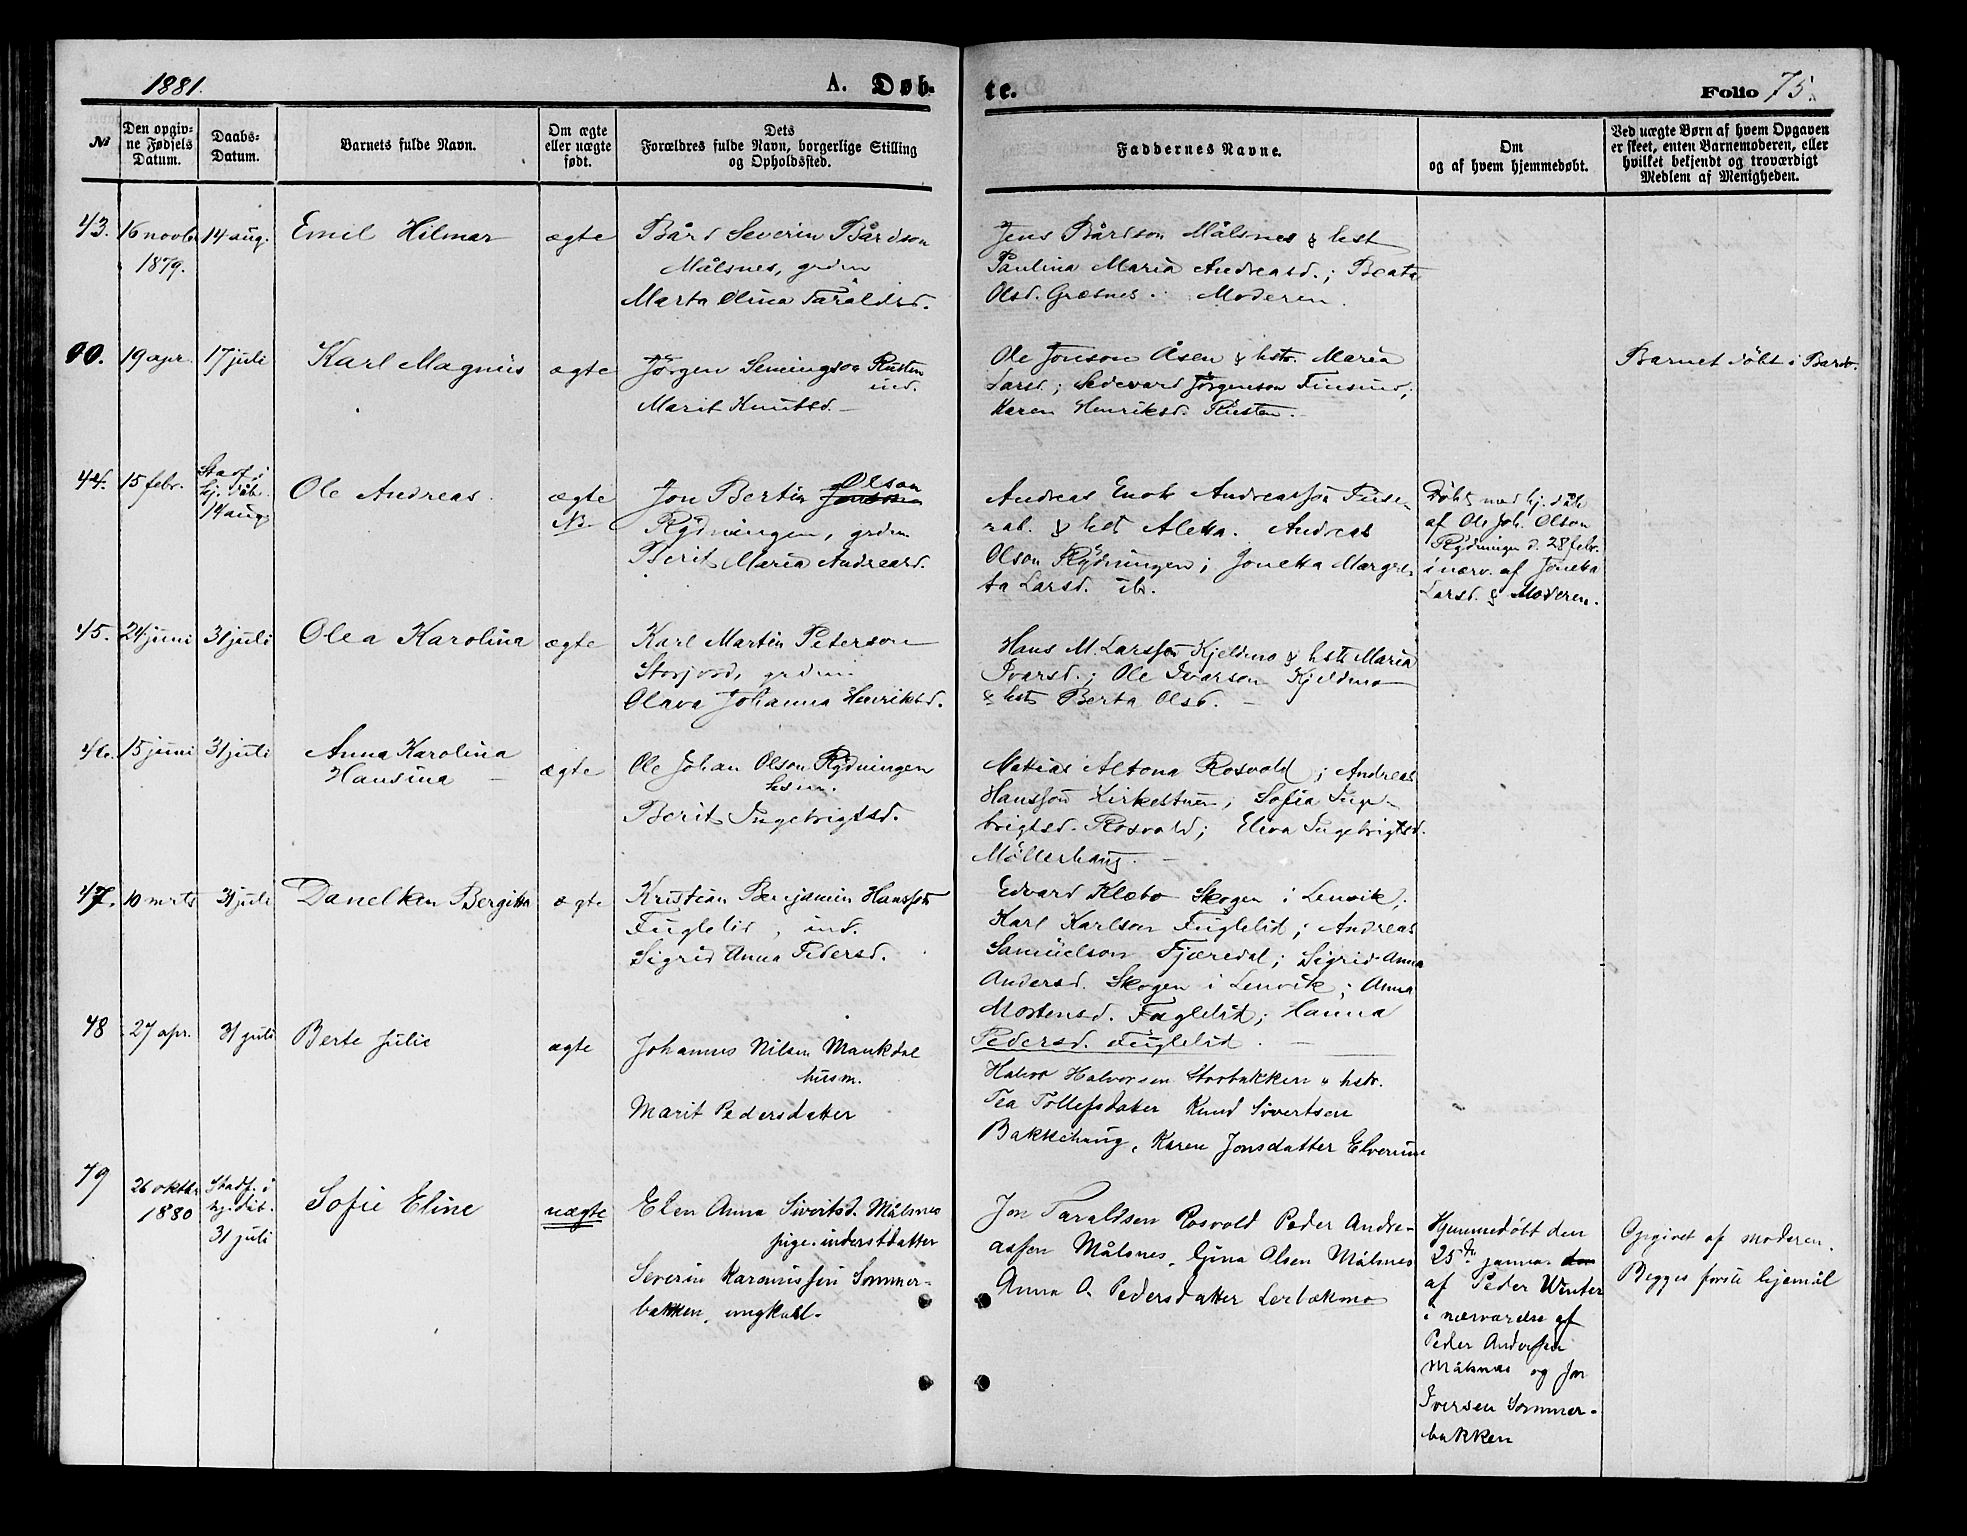 1881.
A. Døb-
te.
Folio 75.
№
Den opgiv-
ne Fødsels
Datum.
Daabs-
Datum.
Barnets fulde Navn.
Om ægte
eller uægte
født.
Dets
Forældres fulde Navn, borgerlige Stilling
og Opholdssted.
Faddernes Navne.
Om
og af hvem hjemmedøbt.
Ved uægte Børn af hvem Opgaven
er skeet, enten Barnemoderen, eller
hvilket bekjendt og troværdigt
Medlem af Menigheden.
43.
16 novbr
1879.
14 aug.
Emil Hilmar
ægte
Bård Severin Bårdson
Målsnes, grdm
Marta Olina Taraldsd.
Jens Bårdson Målsnes & hst
Paulina Maria Andreasd.; Beate
Olsd. Græsnes. Moderen.
00.
19 apr.
17 juli
Karl Magnus
ægte
Jørgen Semingson Rusten
ind.
Marit Knutsd.
Ole Jonson Åsen & hstr. Maria
Larsd; Sedevard Jørgenson Finsund;
Karen Henriksd. Rusten.
Barnet döbt i Bardo.
44.
15 febr.
Stadf. i
hj. dåb.
14 aug
Ole Andreas.
ægte
No
Jon Bertin Jonson Olson
Rydningen, grdm.
Berit Maria Andreasd.
Andreas Enok Andreassen Fuse-
& hst Aletta. Andreas
Olson Rydningen; Jonetta Margre-
ta Larsd. ib.
Døbt ned hj. dåb
af Ole Joh. Olson
Rydningen d. 28 febr.
i nærv. af Jonetta
Larsd. & Moderen.
45.
24 juni
31 juli
Olea Karolina
ægte
Karl Martin Peterson
Storjord, grdm.
Olava Johanna Henriksd.
Hans M. Larsson Kjeldmo & hstr Maria
Ivarsd.; Ole Ivarson Kjeldmo
& hst Berta Olsd.
46.
15 juni
31 juli
Anna Karolina
Hansina
ægte
Ole Johan Olson Rydningen
husm.
Berit Ingebrigtsd.
Matias Altona Rosvold; Andreas
Hansson Kirkestuen; Sofia Inge-
brigtsd. Rosvold; Elva Ingebrigtsd.
Möllerhaug.
47.
10 mrts
31 juli
Danelken Bergitta
ægte
Kristian Benjamin Hansson
Fuglelid, ind.
Sigrid Anna Pedersd.
Edvard Klæbo Skogen i Lenvik;
Karl Karlson Fuglelid; Andreas
Samuelson Fjæredal; Sigrid Anna
Andersd. Skogen i Lenvik; Anna
Mortensd. Fuglelid; Hanna
Pedersd. Fuglelid.
48
27 apr.
31 juli
Berte Julie
ægte
Johannes Nilsen Maukdal
husm.
Marit Pedersdatter
Halvor Halvorsen Storbakken & hstr.
Tea Tollefsdatter Knud Sivertsen
Bakkehaug, Karen Jonsdatter Elverum
49
26 oktbr
1880
Stadf. i
hj. dåb.
31 juli
Sofie Eline
uægte
Elen Anna Sivertsd. Målsnes
pige. inderstdatter
Severin Karanissen Sommer-
bakken, ungkarl.
Jon Taraldsen Rosvold Peder Andre-
assen Målsnes, Gjina Olsen Målsnes
Anna O. Pedersdatter Lerbækmo
Hjemmedöbt den
25de januar
af Peder Winter
i nærværelse af
Peder Andersen
Målsnes og Jon
Iversen Sommer-
bakken
Opgivet af moderen.
Begges første lejemål